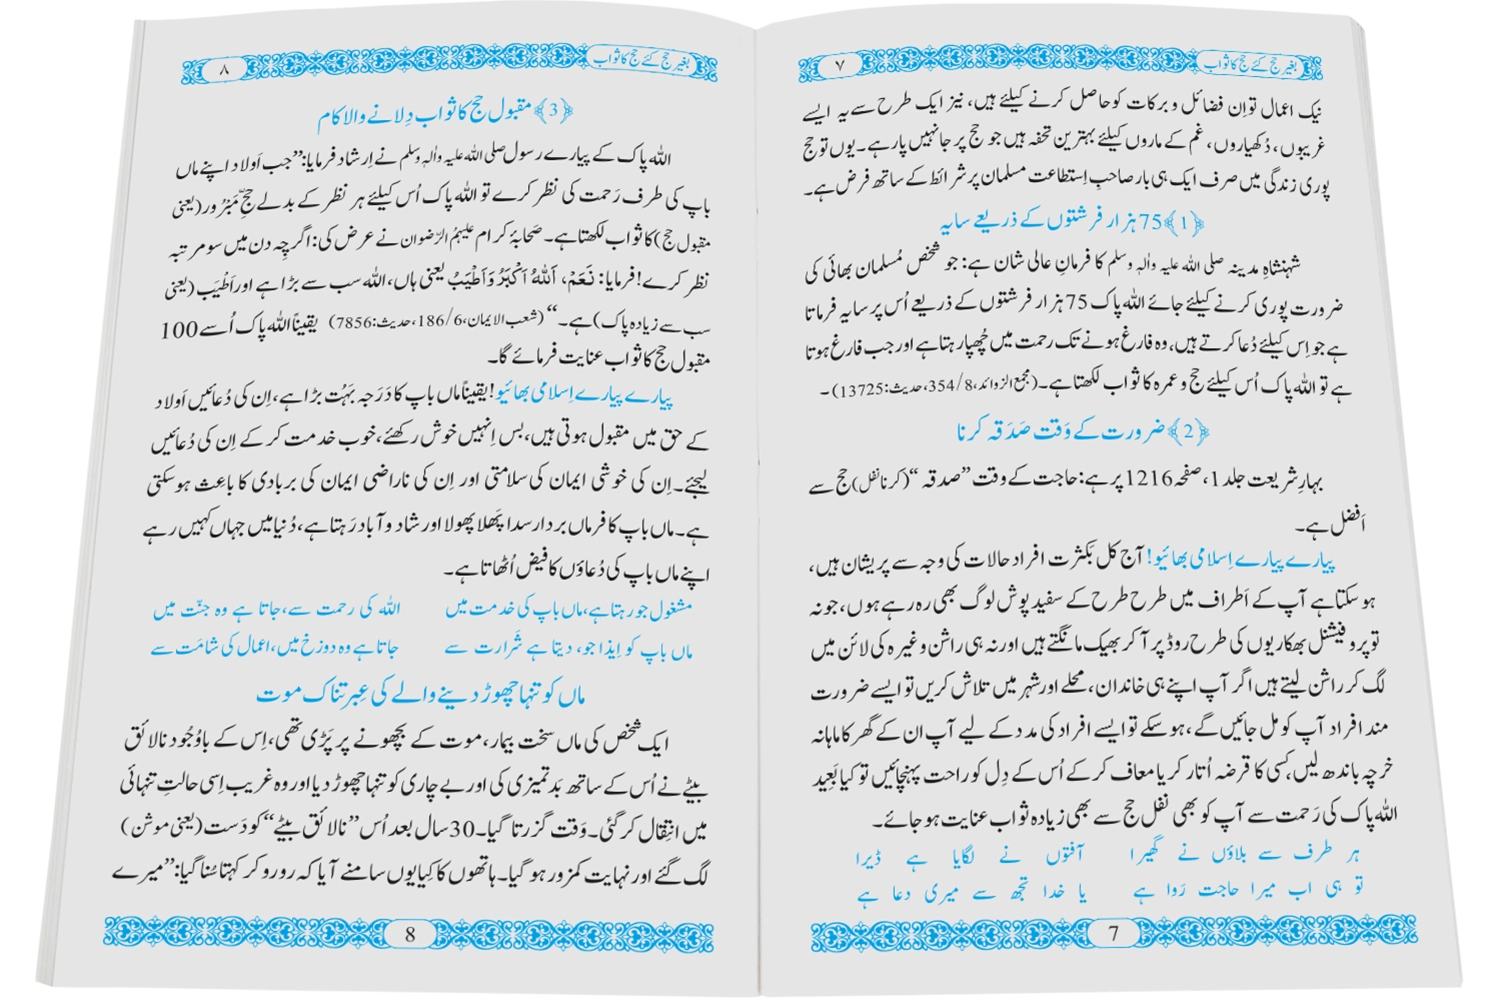 بغیر حج کئے حج کا ثواب
٧
نیک اعمال تو اِن فضائل و برکات کو حاصل کرنے کیلئے ہیں، نیز ایک طرح سے یہ ایسے
غریبوں، دُکھیاروں، غم کے ماروں کیلئے بہترین تحفہ ہیں جو حج پر جا نہیں پا رہے۔ یوں تو حج
پوری زندگی میں صرف ایک ہی بار صاحبِ اِستطاعت مسلمان پر شرائط کے ساتھ فرض ہے۔
﴿1﴾ 75 ہزار فرشتوں کے ذریعے سایہ
شہنشاہِ مدینہ صلی اللہ علیہ واٰلہٖ وسلم کا فرمانِ عالی شان ہے: جو شخص مُسلمان بھائی کی
ضرورت پوری کرنے کیلئے جائے اللہ پاک 75 ہزار فرشتوں کے ذریعے اُس پر سایہ فرماتا
ہے جو اِس کیلئے دُعا کرتے ہیں، وہ فارغ ہونے تک رحمت میں چُھپا رہتا ہے اور جب فارغ ہوتا
ہے تو اللہ پاک اُس کیلئے حج و عمرہ کا ثواب لکھتا ہے۔ (مجمع الزوائد، 8/354، حدیث: 13725)۔
﴿2﴾ ضرورت کے وَقت صَدَقہ کرنا
بہارِ شریعت جلد 1، صفحہ 1216 پر ہے: حاجت کے وقت ”صدقہ“ (کرنا نفل) حج سے
اَفضل ہے۔
پیارے پیارے اِسلامی بھائیو! آج کل بکَثرت افراد حالات کی وجہ سے پریشان ہیں،
ہو سکتا ہے آپ کے اَطراف میں طرح طرح کے سفید پوش لوگ بھی رہ رہے ہوں، جو نہ
تو پروفیشنل بھکاریوں کی طرح روڈ پر آ کر بھیک مانگتے ہیں اور نہ ہی راشن وغیرہ کی لائن میں
لگ کر راشن لیتے ہیں اگر آپ اپنے ہی خاندان، محلے اور شہر میں تلاش کریں تو ایسے ضرورت
مند افراد آپ کو مل جائیں گے، ہو سکے تو ایسے افراد کی مدد کے لیے آپ ان کے گھر کا ماہانہ
خرچہ باندھ لیں، کسی کا قرضہ اُتار کر یا معاف کر کے اُس کے دِل کو راحت پہنچائیں تو کیا بَعِید
اللہ پاک کی رَحمت سے آپ کو بھی نفل حج سے بھی زیادہ ثواب عنایت ہو جائے۔
ہر طرف سے بلاؤں نے گھیرا آفتوں نے لگایا ہے ڈیرا
تو ہی اب میرا حاجت رَوا ہے یا خدا تجھ سے میری دعا ہے
7
بغیر حج کئے حج کا ثواب
٨
﴿3﴾ مقبول حج کا ثواب دِلانے والا کام
اللہ پاک کے پیارے رسول صلی اللہ علیہ واٰلہٖ وسلم نے اِرشاد فرمایا: ”جب اَولاد اپنے ماں
باپ کی طرف رَحمت کی نظر کرے تو اللہ پاک اُس کیلئے ہر نظر کے بدلے حجِّ مَبْرُور (یعنی
مقبول حج) کا ثواب لکھتا ہے۔ صَحابۂ کرام علیہمُ الرّضوان نے عرض کی: اگرچِہ دن میں سو مرتبہ
نظر کرے! فرمایا: نَعَمْ، اَللّٰهُ اَکْبَرُ وَاَطْیَبُ یعنی ہاں، اللہ سب سے بڑا ہے اور اَطْیَب (یعنی
سب سے زیادہ پاک) ہے۔“ (شعب الایمان، 6/186، حدیث: 7856) یقیناً اللہ پاک اُسے 100
مقبول حج کا ثواب عنایت فرمائے گا۔
پیارے پیارے اِسلامی بھائیو! یقیناً ماں باپ کا دَرَجہ بَہُت بڑا ہے، اِن کی دُعائیں اَولاد
کے حق میں مقبول ہوتی ہیں، بس اِنہیں خوش رکھئے، خوب خدمت کر کے اِن کی دُعائیں
لیجئے۔ اِن کی خوشی ایمان کی سلامتی اور اِن کی ناراضی ایمان کی بربادی کا باعِث ہو سکتی
ہے۔ ماں باپ کا فرماں بردار سدا پَھلا پھولا اور شاد و آباد رَہتا ہے، دُنیا میں جہاں کہیں رہے
اپنے ماں باپ کی دُعاؤں کا فیض اُٹھاتا ہے۔
مشغول جو رہتا ہے، ماں باپ کی خدمت میں اللہ کی رحمت سے، جاتا ہے وہ جنّت میں
ماں باپ کو اِیذا جو، دیتا ہے شَرارت سے جاتا ہے وہ دوزخ میں، اعمال کی شامَت سے
ماں کو تنہا چھوڑ دینے والے کی عِبرتناک موت
ایک شخص کی ماں سخت بیمار، موت کے بچھونے پر پَڑی تھی، اِس کے باوُجُود نالائق
بیٹے نے اُس کے ساتھ بَدتمیزی کی اور بے چاری کو تنہا چھوڑ دیا اور وہ غریب اِسی حالتِ تنہائی
میں انتِقال کر گئی۔ وَقت گزرتا گیا۔ 30 سال بعد اُس ”نالائق بیٹے“ کو دَست (یعنی موشن)
لگ گئے اور نہایت کمزور ہو گیا۔ ہاتھوں کا کِیا یوں سامنے آیا کہ رو رو کر کہتا سُنا گیا: ”میرے
8